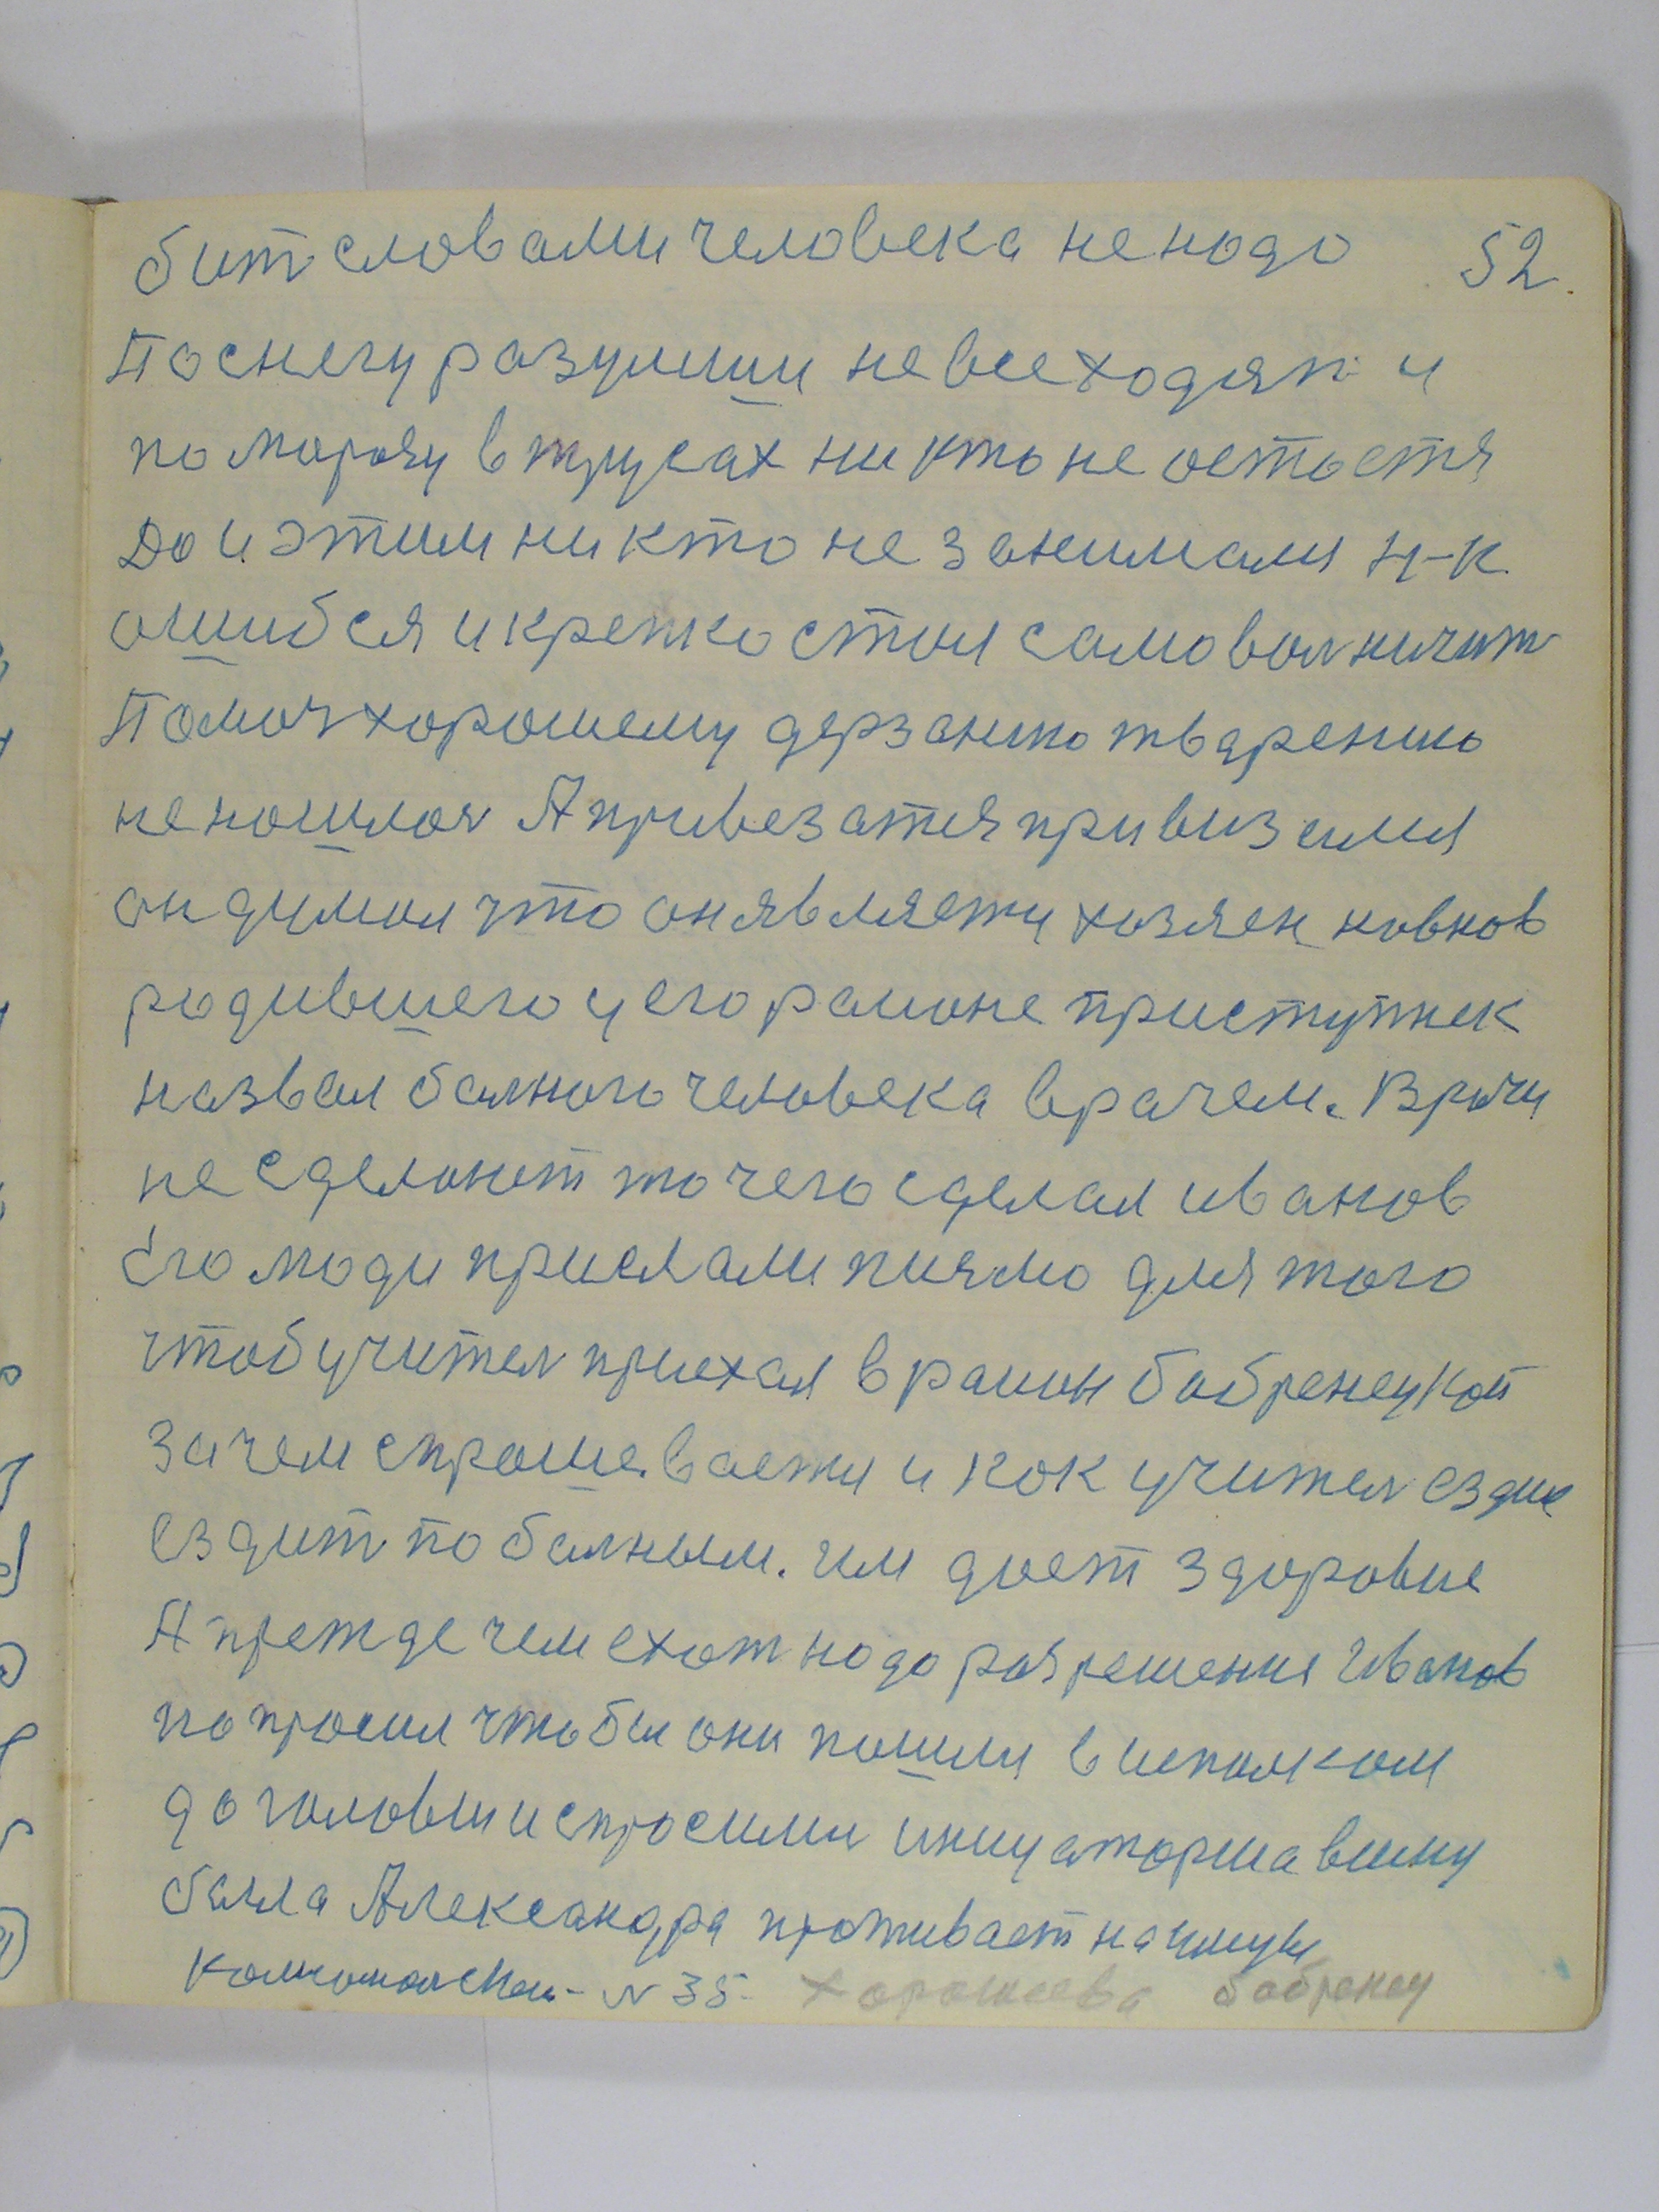 бит словами человека не нодо 52.
По снегу разумши не все ходят и
по морозу в трусах ни кто не остоется
До и этим ни кто не занимался Н-К.
ошибся и крепко стол самоволничит
Помоч хорошему дерзанию тварению
не пошлоя А привезатся привизался
он думал что он является хозяен
родившего у его ромоне приступник
назвал балного человека врачем. Врачи
не сделоют то чего сделал иванов
Его люди прислали писмо для того
чтоб учител приехал в раион бобренецкой
зачем спрошеваетя и кок учител ездие
ездит по балным. им дает здоровие
А преждечем ехат нодо разрешения Иванов
попросил чтобы они пошли в исполком
до головы и спросили иницаторша в етму
была Александра проживает на улицы
Комсомолской - N 35. Хорошеева бобренец